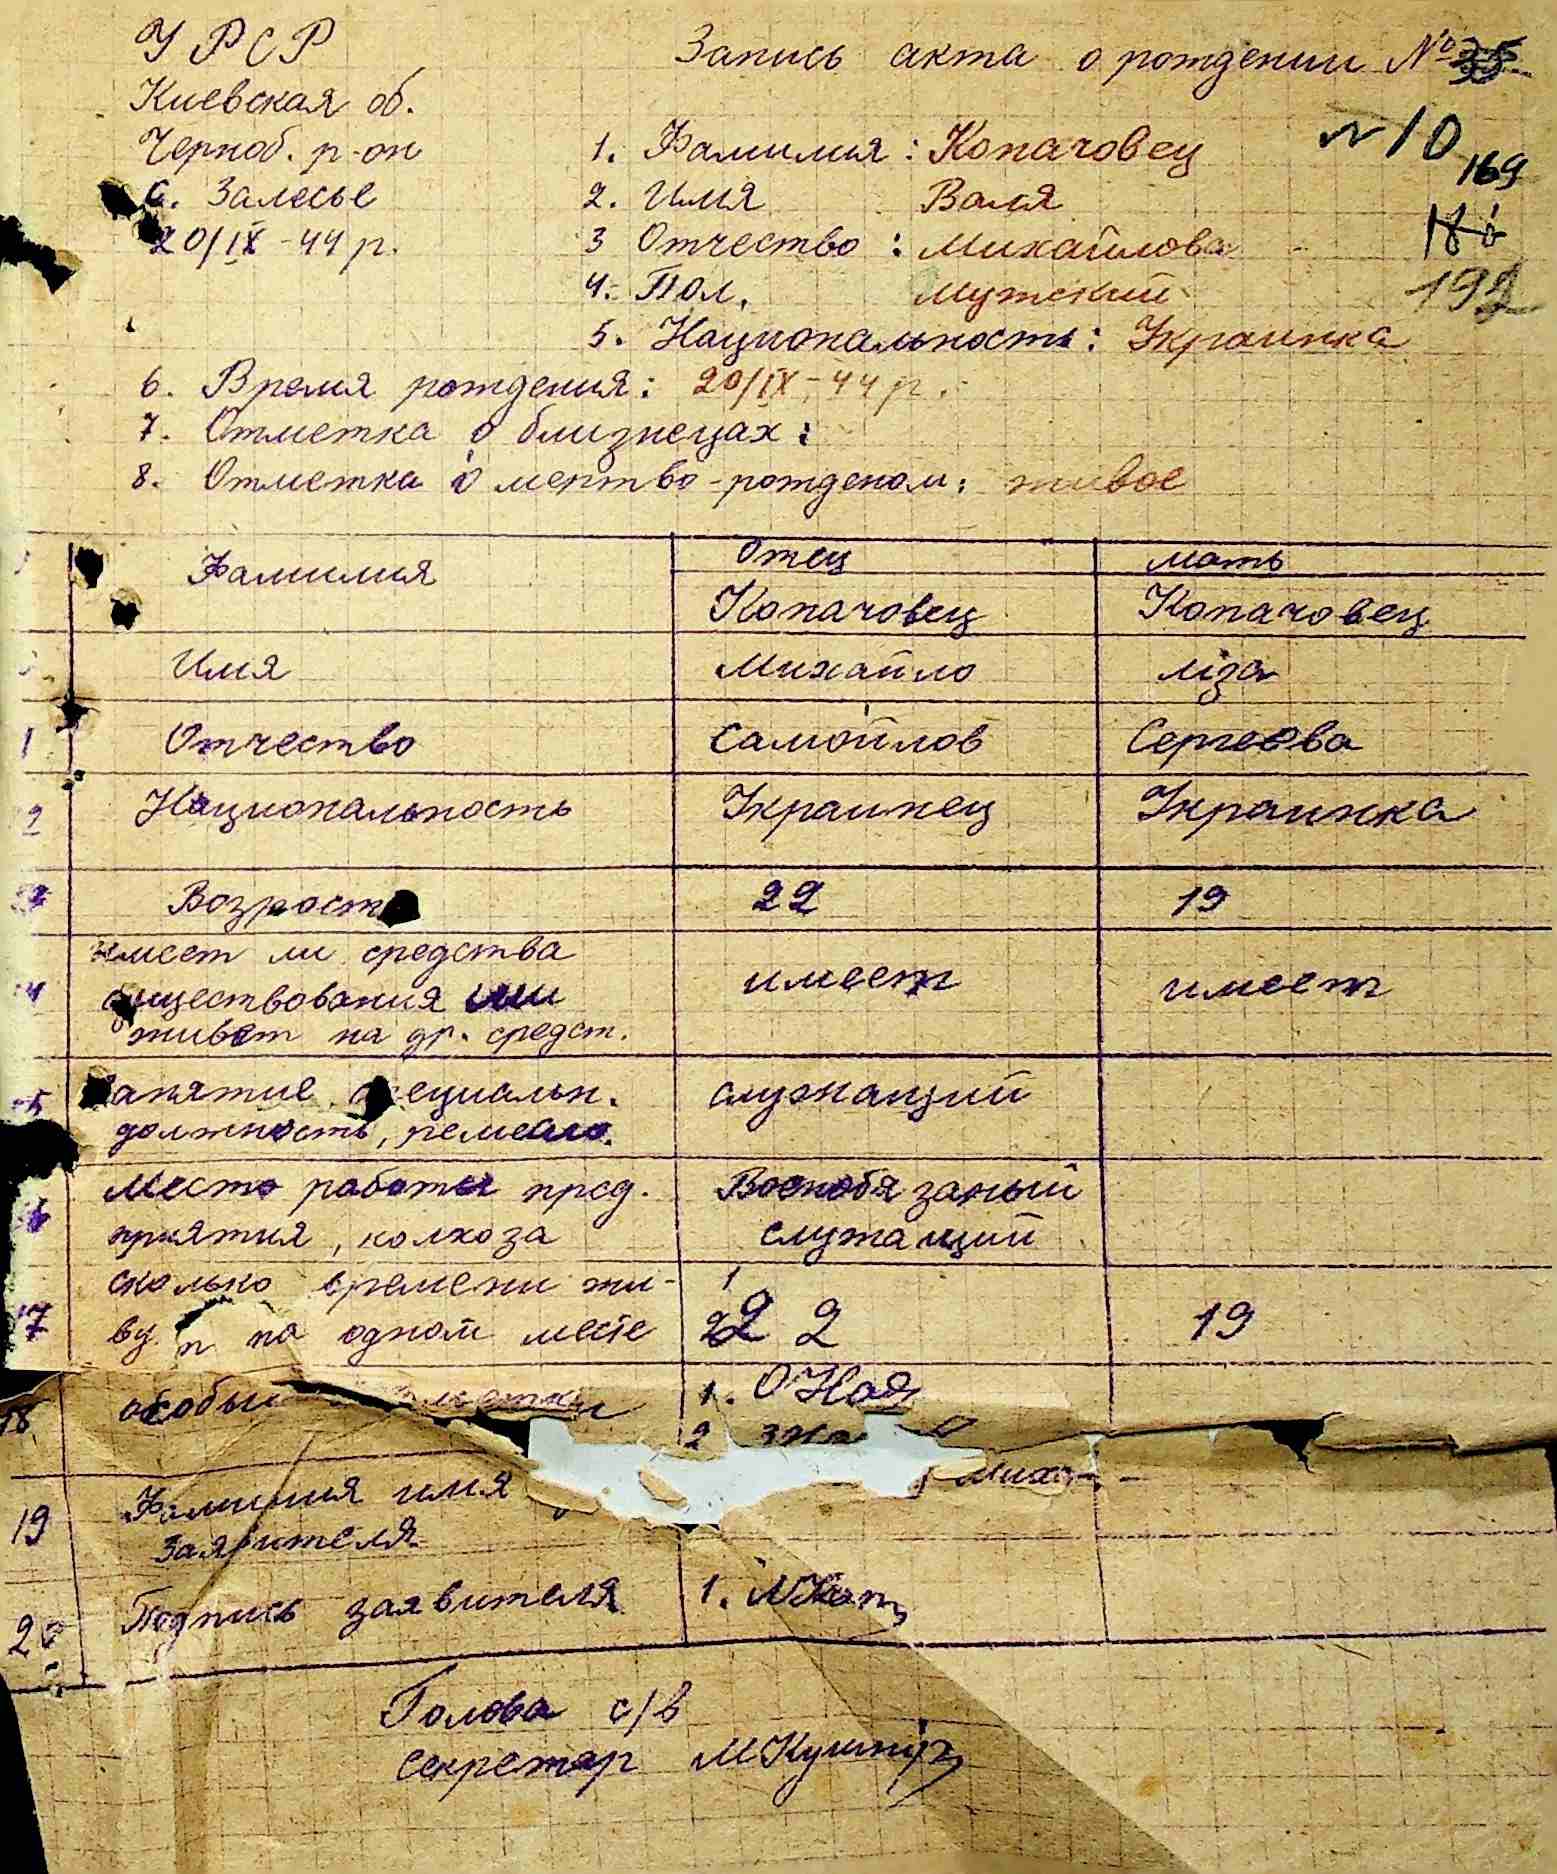 УРСР
Запись акта о рождении № 35
Киевская об.
Черноб. р-он
с. Залесье
20/IX-44 р.
№ 10
169
192
1. Фамилия: Копачовец
2. Имя Валя
3 Отчество: Михайлова
4. Пол. Мужский
5. Национальность: Украинка
6. Время рождения: 20/IX-44 р.
7. Отметка о близнецах:
8. Отметка о мертво-рожденом: живое
Отец мать
Фамилия Копачовец Копачовец
Имя Михайло Ліза
Отчество Самойлов Сергеова
Национальность Украинец Украинка
Возраст 22 19
имеет ли средства
существования или имеет имеет
живет на др. средст.
Занятие специальн. служащий
должность, ремесло.
Место работы пред- Военобязаный
приятия, колхоза служащий
сколько времени жи- 1
вут на одном месте 2 2 19
18 особые отметки 1.
2
19 Фамилия имя
заявителя
20 Подпись заявителя 1.
Голова с/в
секретар